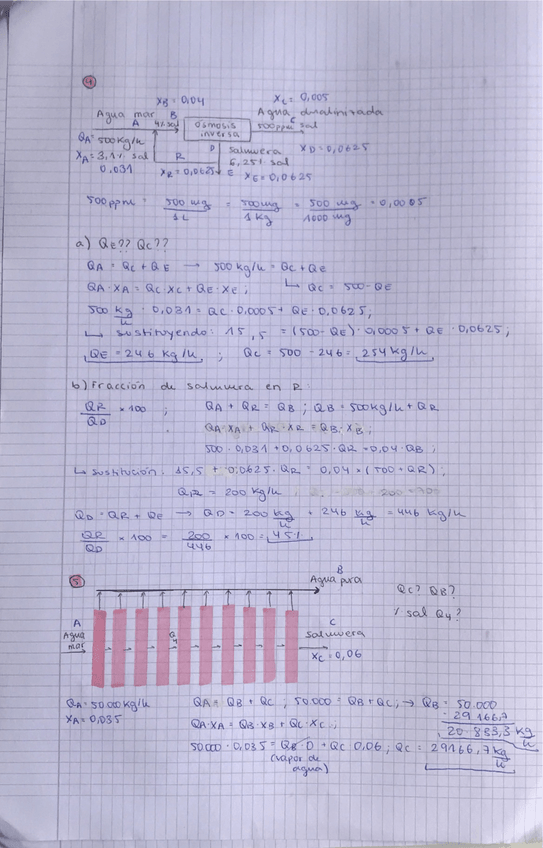 4
X_B = 0,04
X_C = 0,005
Agua mar B
Agua desalinizada
A 4% sal
ósmosis inversa
C
500 ppm sal
Q_A = 500 kg/h
X_A = 3,1% sal
0,031
D
salmuera
6,25% sal
X_D = 0,0625
R
X_R = 0,0625
E
X_E = 0,0625
500 ppm = 500 mg / 1 L = 500 mg / 1 kg = 500 mg / 1000 mg = 0,0005
a) Q_E?? Q_C??
Q_A = Q_C + Q_E → 500 kg/h = Q_C + Q_E
Q_A · X_A = Q_C · X_C + Q_E · X_E ; ↳ Q_C = 500 - Q_E
500 kg/h · 0,031 = Q_C · 0,0005 + Q_E · 0,0625 ;
↳ sustituyendo: 15,5 = (500 - Q_E) · 0,0005 + Q_E · 0,0625 ;
Q_E = 246 kg/h ; Q_C = 500 - 246 = 254 kg/h
b) Fracción de salmuera en R:
Q_R / Q_D × 100 ; Q_A + Q_R = Q_B ; Q_B = 500 kg/h + Q_R
Q_A · X_A + Q_R · X_R = Q_B · X_B ;
500 · 0,031 + 0,0625 · Q_R = 0,04 · Q_B ;
↳ sustitución: 15,5 + 0,0625 · Q_R = 0,04 × (500 + Q_R) ;
Q_R = 200 kg/h
Q_D = Q_R + Q_E → Q_D = 200 kg/h + 246 kg/h = 446 kg/h
Q_R / Q_D × 100 = 200 / 446 × 100 = 45%
5
B
Agua pura
Q_C? Q_B?
% sal Q4?
A
Agua mar
Q4
C
salmuera
X_C = 0,06
Q_A = 50.000 kg/h
X_A = 0,035
Q_A = Q_B + Q_C ; 50.000 = Q_B + Q_C ; → Q_B = 50.000
- 29166,7
20.833,3 kg/h
Q_A · X_A = Q_B · X_B + Q_C · X_C ;
50.000 · 0,035 = Q_B · 0 + Q_C 0,06 ; Q_C = 29166,7 kg/h
(vapor de agua)